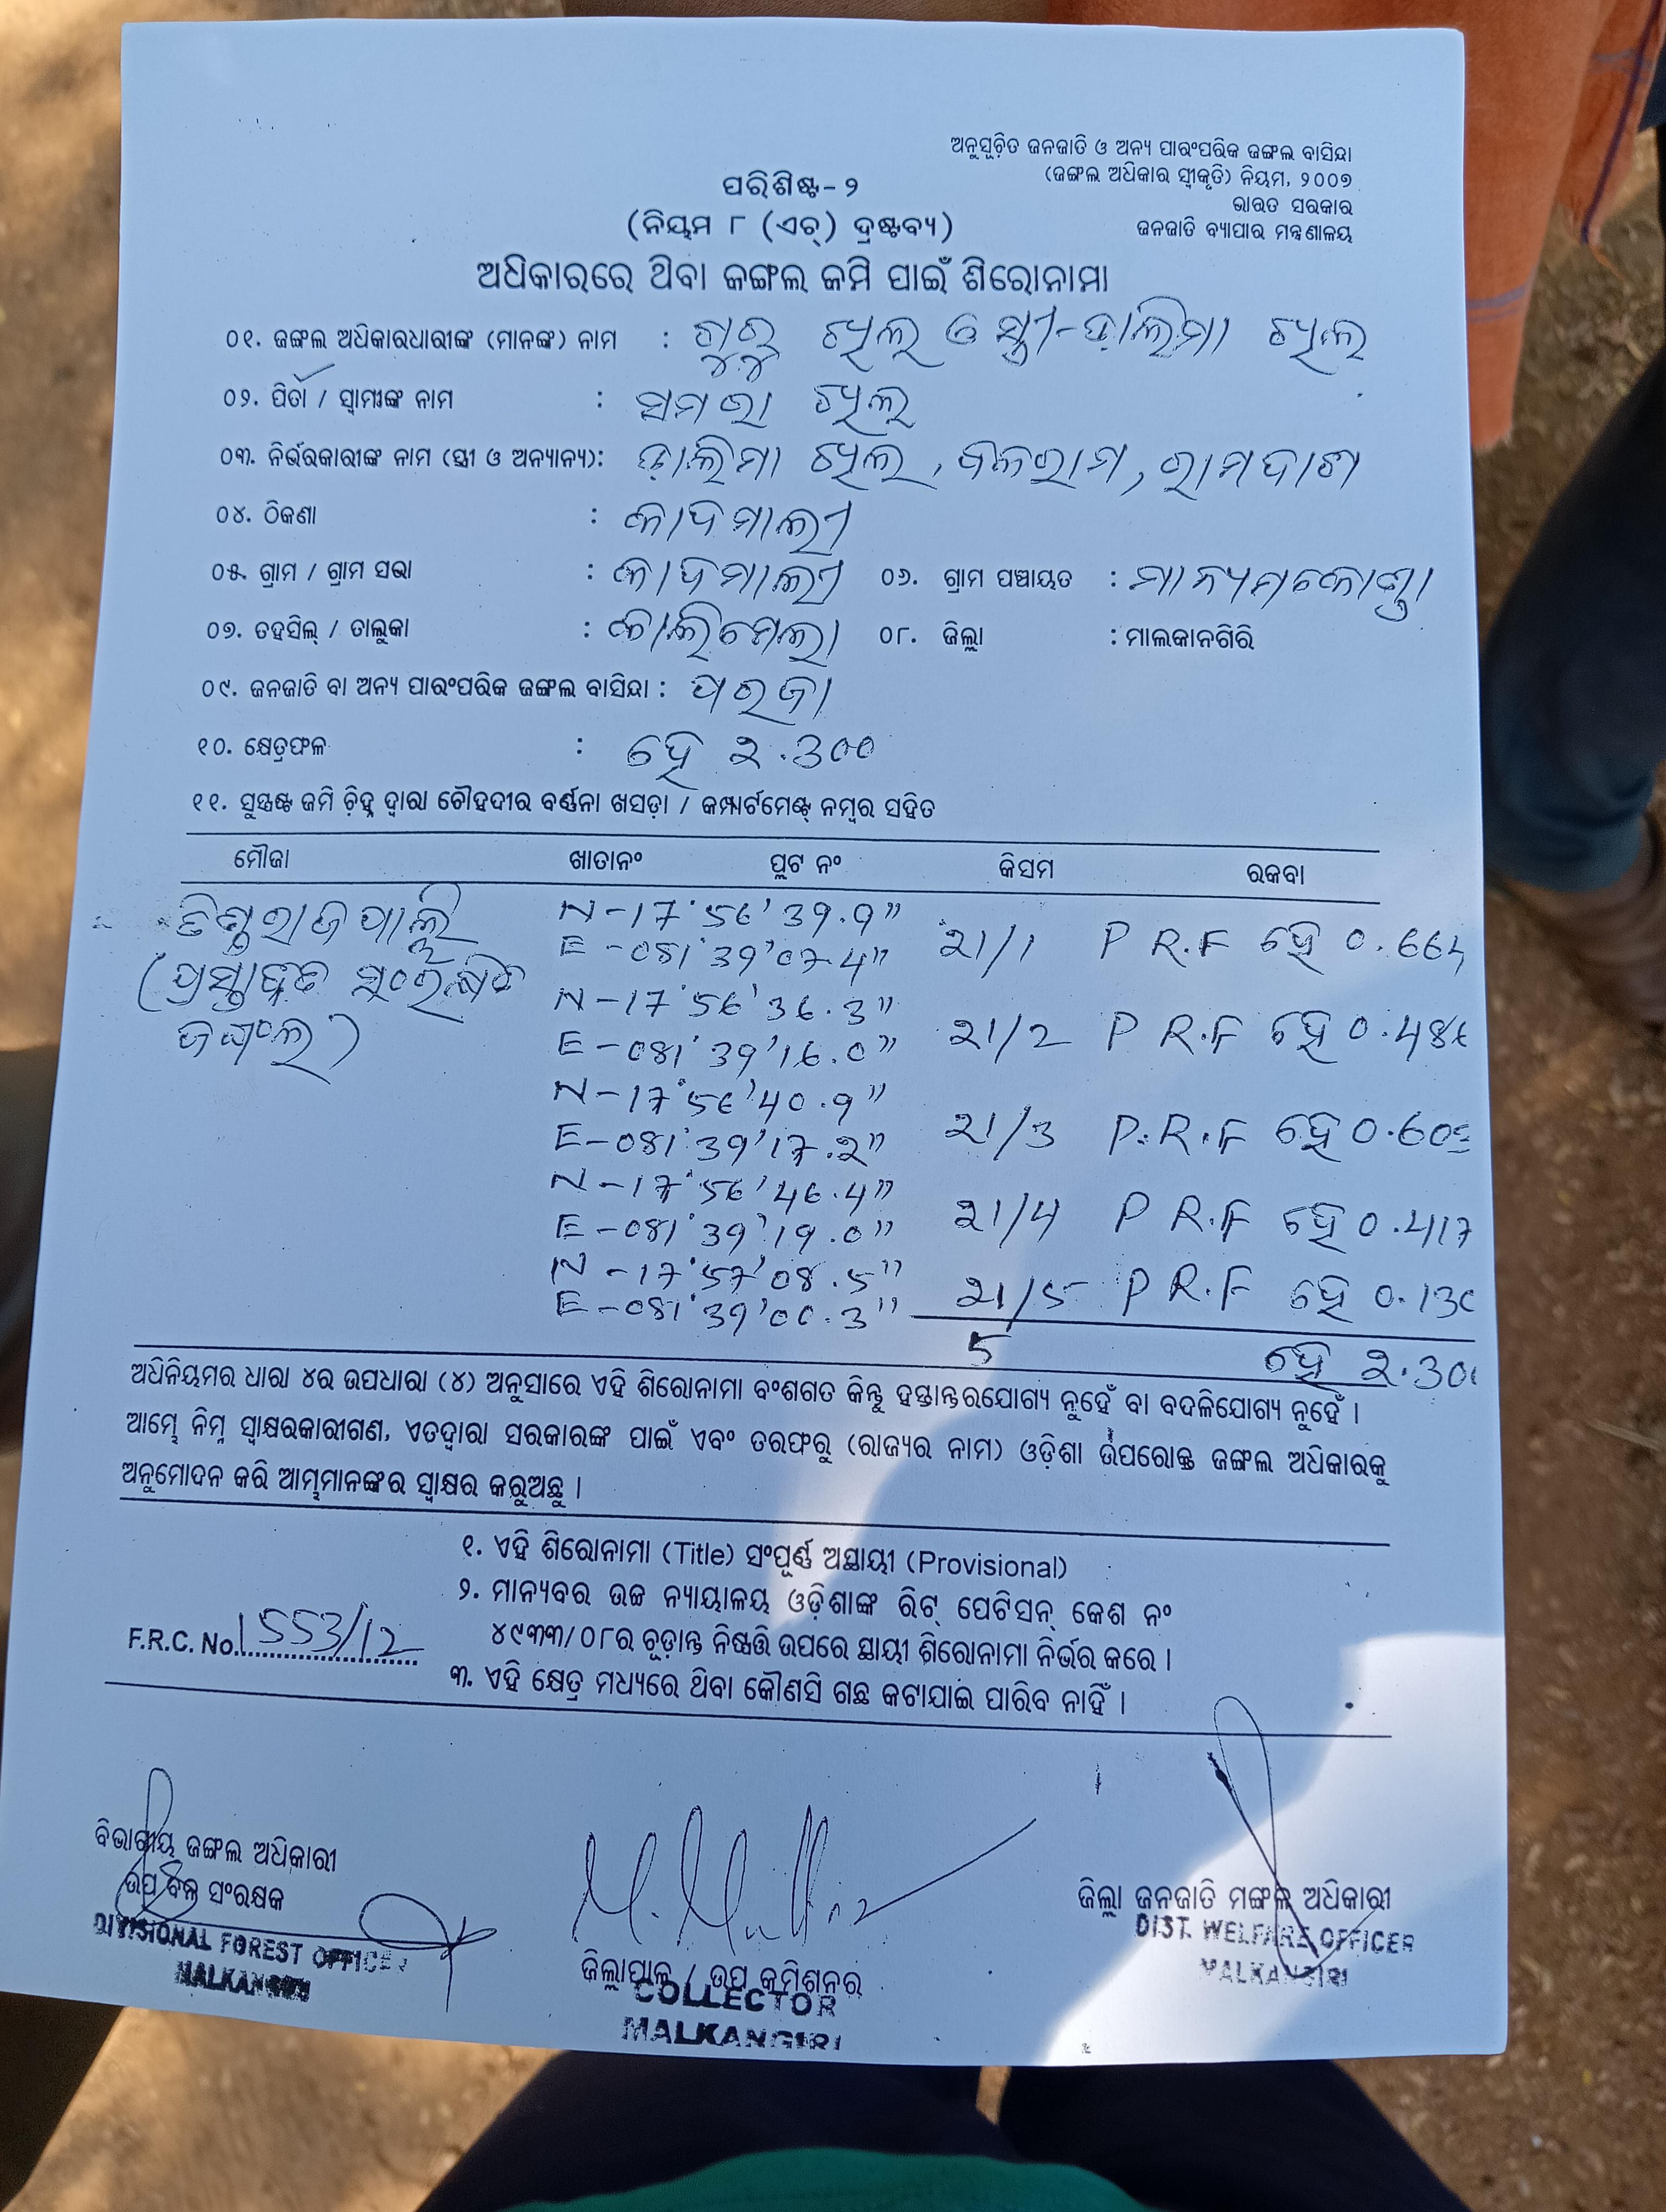 ଅନୁସୂଚିତ ଜନଜାତି ଓ ଅନ୍ୟ ପାରଂପରିକ ଜଙ୍ଗଲ ବାସିନ୍ଦା
(ଜଙ୍ଗଲ ଅଧିକାର ସ୍ୱୀକୃତି) ନିୟମ, ୨୦୦୭
ଭାରତ ସରକାର
ଜନଜାତି ବ୍ୟାପାର ମନ୍ତ୍ରଣାଳୟ
ପରିଶିଷ୍ଟ-୨
(ନିୟମ ୮ (ଏଚ୍) ଦ୍ରଷ୍ଟବ୍ୟ)
ଅଧିକାରରେ ଥିବା ଜଙ୍ଗଲ ଜମି ପାଇଁ ଶିରୋନାମା
୦୧. ଜଙ୍ଗଲ ଅଧିକାରଧାରୀଙ୍କ (ମାନଙ୍କ) ନାମ : ଗୁରୁ ଖିଲ ଓ ସ୍ତ୍ରୀ-ଡାଲିମା ଖିଲ
୦୨. ପିତା / ସ୍ୱାମୀଙ୍କ ନାମ : ସମରା ଖିଲ
୦୩. ନିର୍ଭରକାରୀଙ୍କ ନାମ (ସ୍ତ୍ରୀ ଓ ଅନ୍ୟାନ୍ୟ): ଡାଲିମା ଖିଲ, ବଳରାମ, ରାମଦାସ
୦୪. ଠିକଣା : କାଦମାଲୀ
୦୫. ଗ୍ରାମ / ଗ୍ରାମ ସଭା : କାଦମାଲୀ ୦୬. ଗ୍ରାମ ପଞ୍ଚାୟତ : ମାନ୍ୟମକୋଣ୍ଡା
୦୭. ତହସିଲ୍ / ତାଲୁକା : କାଲିମେଲା ୦୮. ଜିଲ୍ଲା : ମାଲକାନଗିରି
୦୯. ଜନଜାତି ବା ଅନ୍ୟ ପାରଂପରିକ ଜଙ୍ଗଲ ବାସିନ୍ଦା : ପରଜା
୧୦. କ୍ଷେତ୍ରଫଳ : ହେ 2.300
୧୧. ସୁସ୍ପଷ୍ଟ ଜମି ଚିହ୍ନ ଦ୍ୱାରା ଚୌହଦୀର ବର୍ଣ୍ଣନା ଖସଡ଼ା / କମ୍ପାର୍ଟମେଣ୍ଟ୍ ନମ୍ବର ସହିତ
ମୌଜା ଖାତାନଂ ପ୍ଲଟ ନଂ କିସମ ରକବା
N-17°56'39.9"
E-081°39'07.4" 21/1 P R.F ହେ 0.664
(ପ୍ରସ୍ତାବିତ ସଂରକ୍ଷିତ ଜଙ୍ଗଲ)
N-17°56'36.3"
E-081°39'16.0" 21/2 P R.F ହେ 0.486
N-17°56'40.9"
E-081°39'17.2" 21/3 P.R.F ହେ 0.603
N-17°56'46.4"
E-081°39'19.0" 21/4 P R.F ହେ 0.417
N-17°57'08.5"
E-081°39'00.3" 21/5 P R.F ହେ 0.130
5 ହେ 2.300
ଅଧିନିୟମର ଧାରା ୪ର ଉପଧାରା (୪) ଅନୁସାରେ ଏହି ଶିରୋନାମା ବଂଶଗତ କିନ୍ତୁ ହସ୍ତାନ୍ତରଯୋଗ୍ୟ ନୁହେଁ ବା ବଦଳିଯୋଗ୍ୟ ନୁହେଁ ।
ଆମ୍ଭେ ନିମ୍ନ ସ୍ୱାକ୍ଷରକାରୀଗଣ, ଏତଦ୍ୱାରା ସରକାରଙ୍କ ପାଇଁ ଏବଂ ତରଫରୁ (ରାଜ୍ୟର ନାମ) ଓଡ଼ିଶା ଉପରୋକ୍ତ ଜଙ୍ଗଲ ଅଧିକାରକୁ
ଅନୁମୋଦନ କରି ଆମ୍ଭମାନଙ୍କର ସ୍ୱାକ୍ଷର କରୁଅଛୁ ।
୧. ଏହି ଶିରୋନାମା (Title) ସଂପୂର୍ଣ୍ଣ ଅସ୍ଥାୟୀ (Provisional)
୨. ମାନ୍ୟବର ଉଚ୍ଚ ନ୍ୟାୟାଳୟ ଓଡ଼ିଶାଙ୍କ ରିଟ୍ ପେଟିସନ୍ କେଶ ନଂ
୪୯୩୩/୦୮ର ଚୂଡ଼ାନ୍ତ ନିଷ୍ପତ୍ତି ଉପରେ ସ୍ଥାୟୀ ଶିରୋନାମା ନିର୍ଭର କରେ ।
F.R.C. No. 1553/12
୩. ଏହି କ୍ଷେତ୍ର ମଧ୍ୟରେ ଥିବା କୌଣସି ଗଛ କଟାଯାଇ ପାରିବ ନାହିଁ ।
ବିଭାଗୀୟ ଜଙ୍ଗଲ ଅଧିକାରୀ
ଉପ ବନ ସଂରକ୍ଷକ
DIVISIONAL FOREST OFFICER
MALKANGIRI
ଜିଲ୍ଲାପାଳ / ଉପ କମିଶନର
COLLECTOR
MALKANGIRI
ଜିଲ୍ଲା ଜନଜାତି ମଙ୍ଗଳ ଅଧିକାରୀ
DIST. WELFARE OFFICER
MALKANGIRI